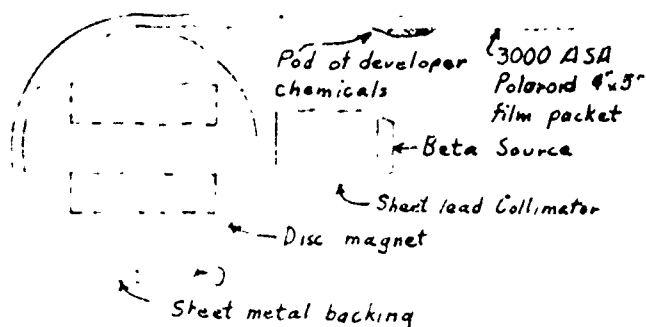 Pod of developer
chemicals
3000 ASA
Polaroid 4"x5"
film packet
Beta Source
Sheet lead Collimator
Disc magnet
Sheet metal backing